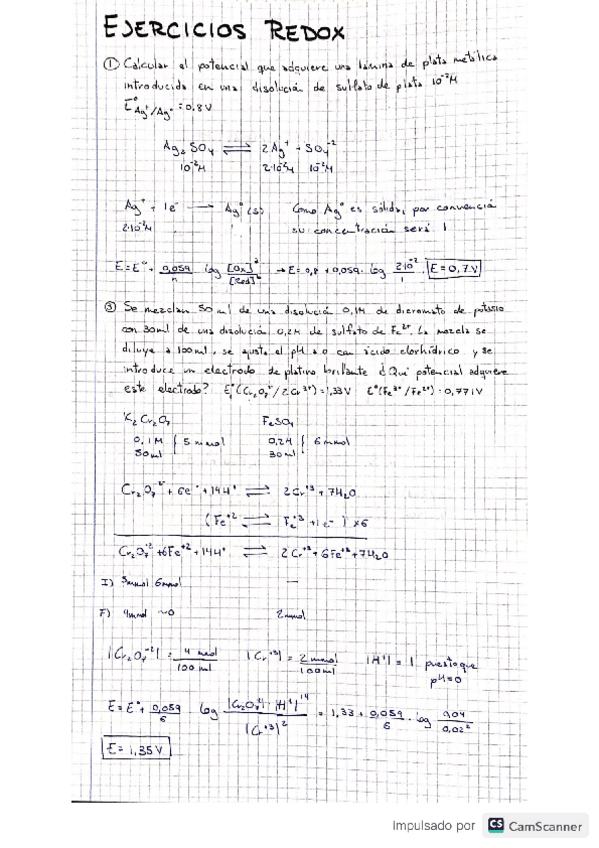 EJERCICIOS REDOX
① Calcular el potencial que adquiere una lámina de plata metálica
introducida en una disolución de sulfato de plata 10⁻²M
E°Ag⁺/Ag° = 0.8V
Ag₂SO₄ ⇌ 2Ag⁺ + SO₄⁻²
10⁻²M 2·10⁻²M 10⁻²M
Ag⁺ + 1e⁻ → Ag°(s) Como Ag° es sólido, por convención
2·10⁻²M su concentración será 1
E = E° + 0,059/n log [Ox]ᵃ/[Red]ᵇ → E = 0,8 + 0,059 · log 2·10⁻²/1 E = 0,7V
③ Se mezclan 50 ml de una disolución 0,1M de dicromato de potasio
con 30ml de una disolución 0,2M de sulfato de Fe²⁺. La mezcla se
diluye a 100ml, se ajusta el pH a 0 con ácido clorhídrico y se
introduce un electrodo de platino brillante ¿Qué potencial adquiere
este electrodo? E°(Cr₂O₇²⁻/2Cr³⁺) = 1,33V E°(Fe³⁺/Fe²⁺) = 0,771V
K₂Cr₂O₇ FeSO₄
0,1M } 5 mmol 0,2M } 6 mmol
50ml 30ml
Cr₂O₇⁻² + 6e⁻ + 14H⁺ ⇌ 2Cr⁺³ + 7H₂O
(Fe⁺² ⇌ Fe⁺³ + 1e⁻) x6
Cr₂O₇⁻² + 6Fe⁺² + 14H⁺ ⇌ 2Cr⁺³ + 6Fe⁺³ + 7H₂O
I) 5mmol 6mmol —
F) 4mmol ~0 2mmol
|Cr₂O₇⁻²| = 4 mmol/100 ml |Cr⁺³| = 2 mmol/100ml |H⁺| = 1 puesto que
pH=0
E = E° + 0,059/6 log |Cr₂O₇⁻²| |H⁺|¹⁴/|Cr⁺³|² = 1,33 + 0,059/6 · log 0,04/0,02²
E = 1,35V
Impulsado por CS CamScanner